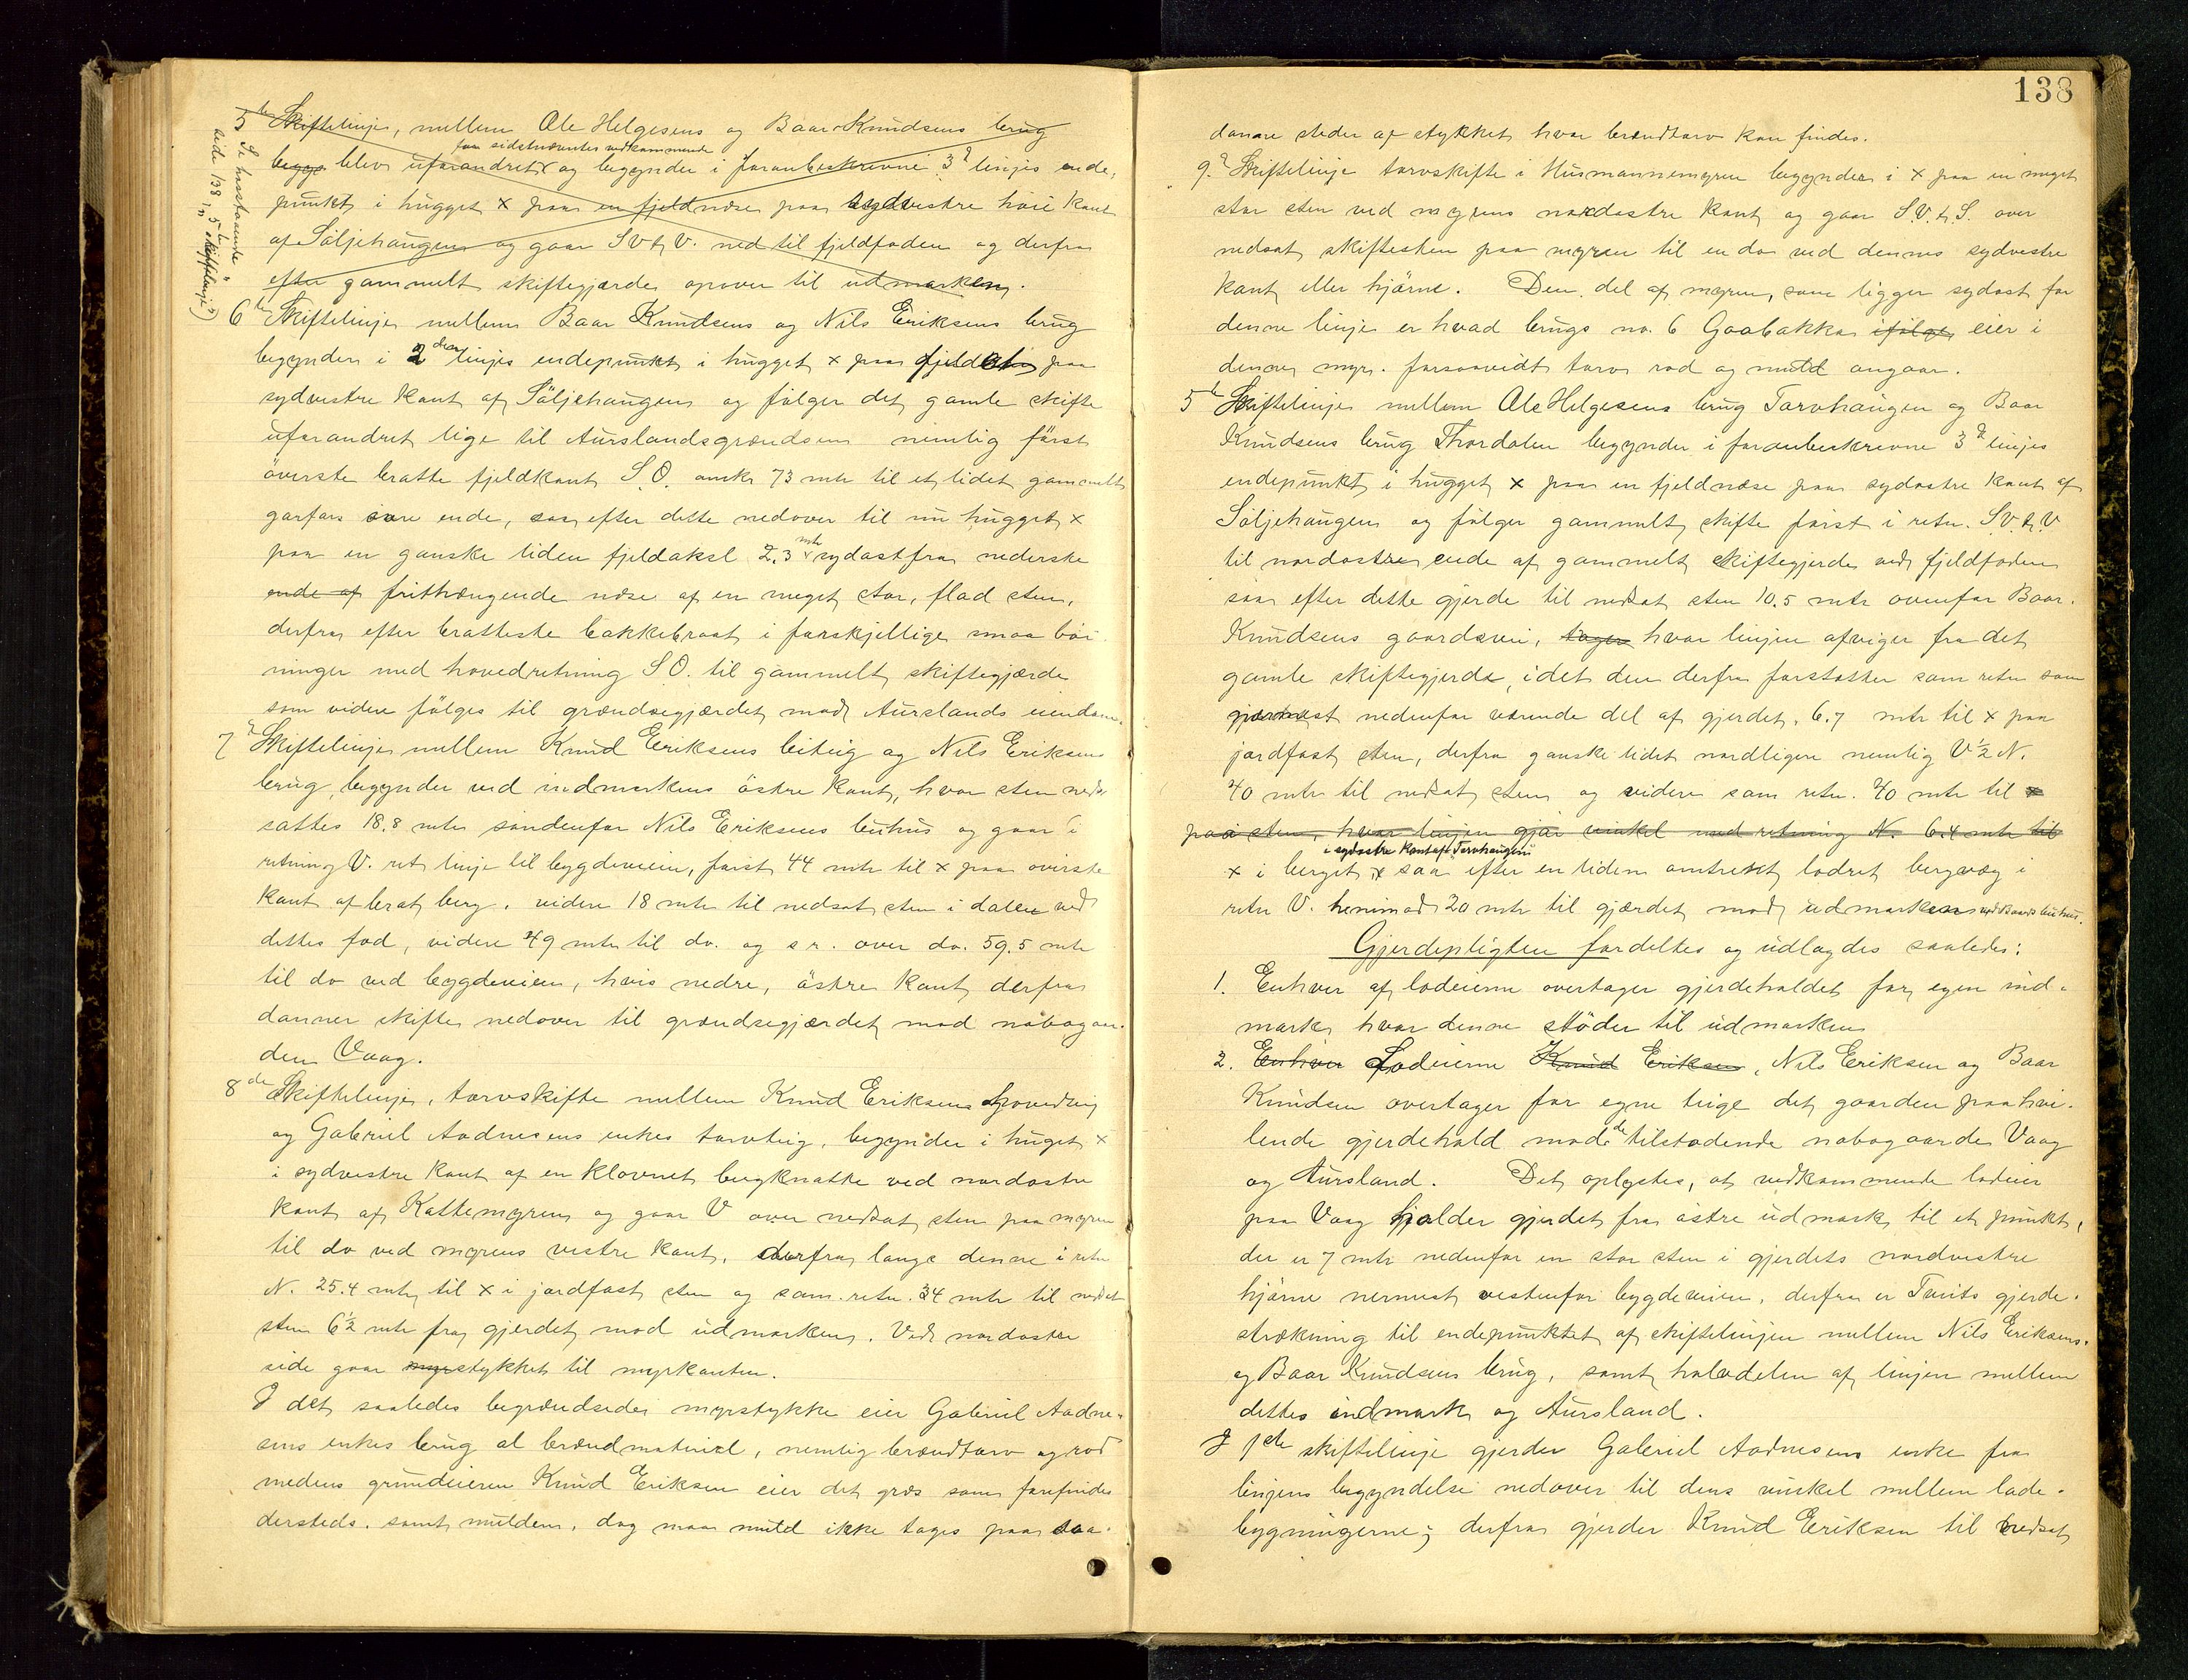 5te Skiftelinje, mellem Ole Helgesens og Baar Knudsens brug
for sidstnævntes vedkommende
begge blev uforandret x og begynder i foranbeskrevne 3die linjes ende,
punkt i hugget x paa en fjeldnase paa sydvestre høie kant
af Säljehaugen og gaar SV t. V. ned til fjeldfoden og derfra
efter gammelt skiftegjærde opover til udmarken.
Se hosstaaende
side 138, "5te skiftelinje")
6te Skiftelinje mellem Baar Knudsens og Nils Eriksens brug
begynder i 2den linjes endepunkt i hugget x paa fjeld paa
sydvestre kant af Säljehaugen og følger det gamle skifte
uforandret lige til Aurslandsgrændsen nemlig först
överste bratte fjeldkant S.O. omkr 73 mtr til et lidet gammelt
garfars övre ende, saa efter dette nedover til nu hugget x
paa en ganske liden fjeldaksl 2.3 mtr sydostfra nederste
ende af frithængende næse af en meget stor, flad sten,
derfra efter bratteste bakkebrot i forskjellige smaa böi-
ninger med hovedretning S O. til gammelt skiftegjærde
som videre fölges til grændsegjærdet mod Aurslands eiendom.
7de Skiftelinje mellem Knud Eriksens biteig og Nils Eriksens
brug, begynder ved indmarkens östre kant, hvor sten ned-
sattes 18.8 mtr söndenfor Nils Eriksens løhus og gaar i
retning V. ret linje til bygdeveien, først 44 mtr til x paa øverste
kant af brat berg, videre 18 mtr til nedsat sten i dalen ved
dettes fod, videre 49 mtr til do. og s r. over do. 59.5 mtr
til do ved bygdeveien, hvis nedre, östre kant derfra
danner skifte nedover til grændsegjærdet mod nabogaar-
den Vaag.
8de Skiftelinje, torvskifte mellem Knud Eriksens hovedteig
og Gabriel Aadnesens enkes torvteig, begynder i huget x
i sydvestre kant af en klovnet bergknatte ved nordøstre
kant af Kattemyren og gaar V over nedsat sten paa myren
til do ved myrens vestre kant, derfra langs denne i retn
N. 25.4 mtr til x i jordfast sten og sam. retn. 34 mtr til nedsat
sten 6½ mtr fra gjerdet mod udmarken. Ved nordøstre
side gaar myrstykket til myrkanten.
I det saaledes begrændsede myrstykke eier Gabriel Aadne-
sens enkes brug al brændmateriel, nemlig brændtorv og rod
medens grundeieren Knud Eriksen eier det græs som forefindes
dersteds. samt mulden, dog maa muld ikke tages paa saa-
138
danne steder af stykket hvor brændtorv kan findes.
9de Skiftelinje torvskifte i Husmannsmyren begynder i x paa en meget
stor sten ved myrens nordøstre kant og gaar S.V. t. S. over
nedsat skiftesten paa myren til en do ved dennes sydvestre
kant eller hjörne. Den del af myren, som ligger sydost for
denne linje er hvad brugs no. 6 Gaabakka ifølge eier i
denne myr. forsaavidt torv rod og muld angaar.
5te Skiftelinje mellem Ole Helgesens brug Torvhaugen og Baar
Knudsens brug Thordalen begynder i foranbeskrevne 3die linjes
endepunkt i hugget x paa en fjeldnæse paa sydøstre kant af
Säljehaugen og følger gammelt skifte først i retn. S.V. t. V
til nordostre ende af gammelt skiftegjerde ved fjeldfoden
saa efter dette gjerde til nedsat sten 10.5 mtr ovenfor Baar
Knudsens gaardsvei, tager hvor linjen afviger fra det
gamle skiftegjerde, idet den derfra forstætter sam retn som
nærmest nedenfor værende del af gjerdet, 6.7 mtr til x paa
jordfast sten, derfra ganske lidet nordligere nemlig V ½ N.
40 mtr til nedsat sten og videre sam retn. 40 mtr til x
paa sten, hvor linjen gjør vinkel med retning N. 6.4 mtr til
i sydøstre kant af "Torvhaugen"
x i berget, x saa efter en liden omtrent lodret bergvæg i
retn V. henimod 20 mtr til gjærdet mod udmarken ved Baards løhus.
Gjerdepligten fordeltes og udlagdes saaledes:
1. Enhver af lodeierne overtager gjerdeholdet for egen ind-
mark hvor denne støder til udmarken
2. Enhver Lodeierne Knud Eriksen, Nils Eriksen og Baar
Knudsen overtager for egne teige det gaarden paahvi-
lende gjerdehold mod de tilstødende nabogaarde Vaag
og Aursland. Det oplystes, at vedkommende lodeier
paa Vaag holder gjerdet fra östre udmark til et punkt,
der er 7 mtr nedenfor en stor sten i gjerdets nordvestre
hjörne nermest vestenfor bygdeveien, derfra er Tveits gjerde-
strækning til endepunktet af skiftelinjen mellem Nils Eriksens
og Baar Knudsens brug, samt halvdelen af linjen mellem
dettes indmark og Aursland.
I 1ste skiftelinje gjerder Gabriel Aadnesens enke fra
linjens begyndelse nedover til dens vinkel mellem lade-
bygningerne; derfra gjerder Knud Eriksen til nedsat